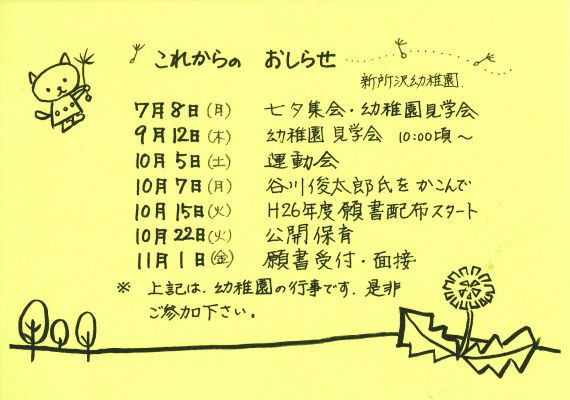 これからの おしらせ
新所沢幼稚園.
7月8日(月) 七夕集会・幼稚園見学会
9月12日(木) 幼稚園見学会 10:00頃~
10月5日(土) 運動会
10月7日(月) 谷川俊太郎氏をかこんで
10月15日(火) H26年度願書配布スタート
10月22日(火) 公開保育
11月1日(金) 願書受付・面接
※ 上記は、幼稚園の行事です。是非
ご参加下さい。